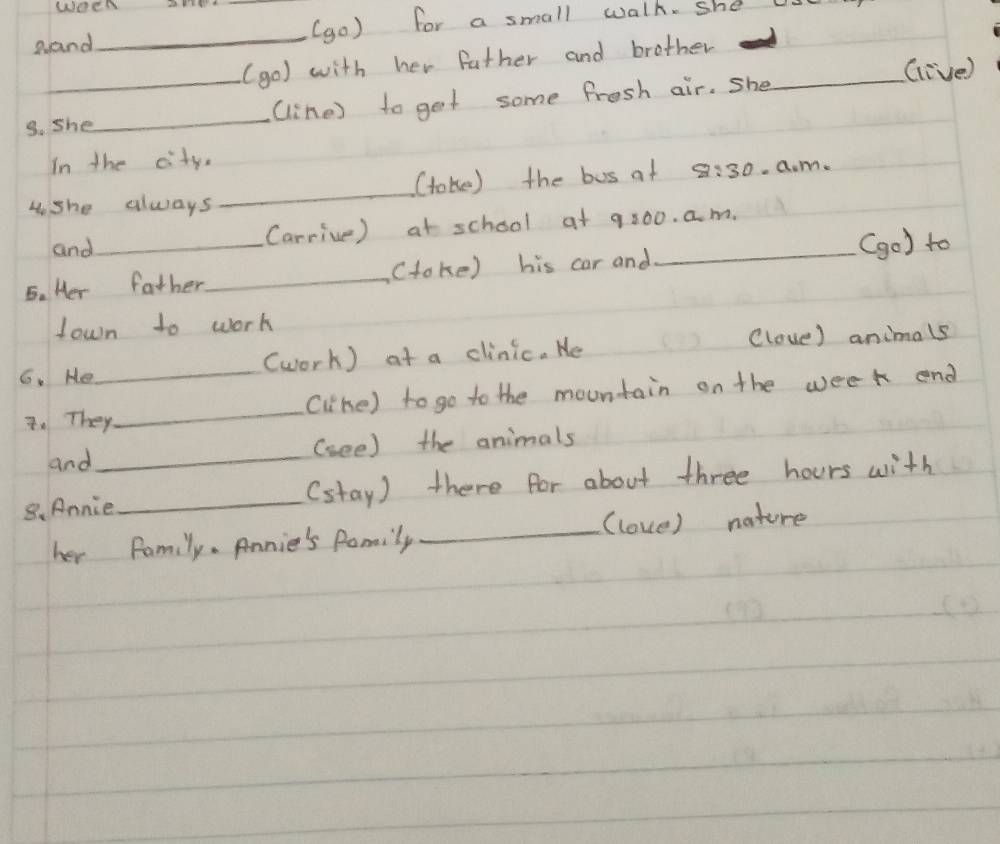 week she
2. and ____________ (go) for a small walk. She
____________ (go) with her father and brother
3. She ____________ (like) to get some fresh air. She ________ (live)
In the city.
4. She always ____________ (take) the bus at 8:30. a.m.
and ____________ (arrive) at school at 9:00. a.m.
5. Her father ____________ (take) his car and ____________ (go) to
town to work
6. He ____________ (work) at a clinic. He (love) animals
7. They ____________ (like) to go to the mountain on the week end
and ____________ (see) the animals
8. Annie ____________ (stay) there for about three hours with
her family. Annie's family ____________ (love) nature